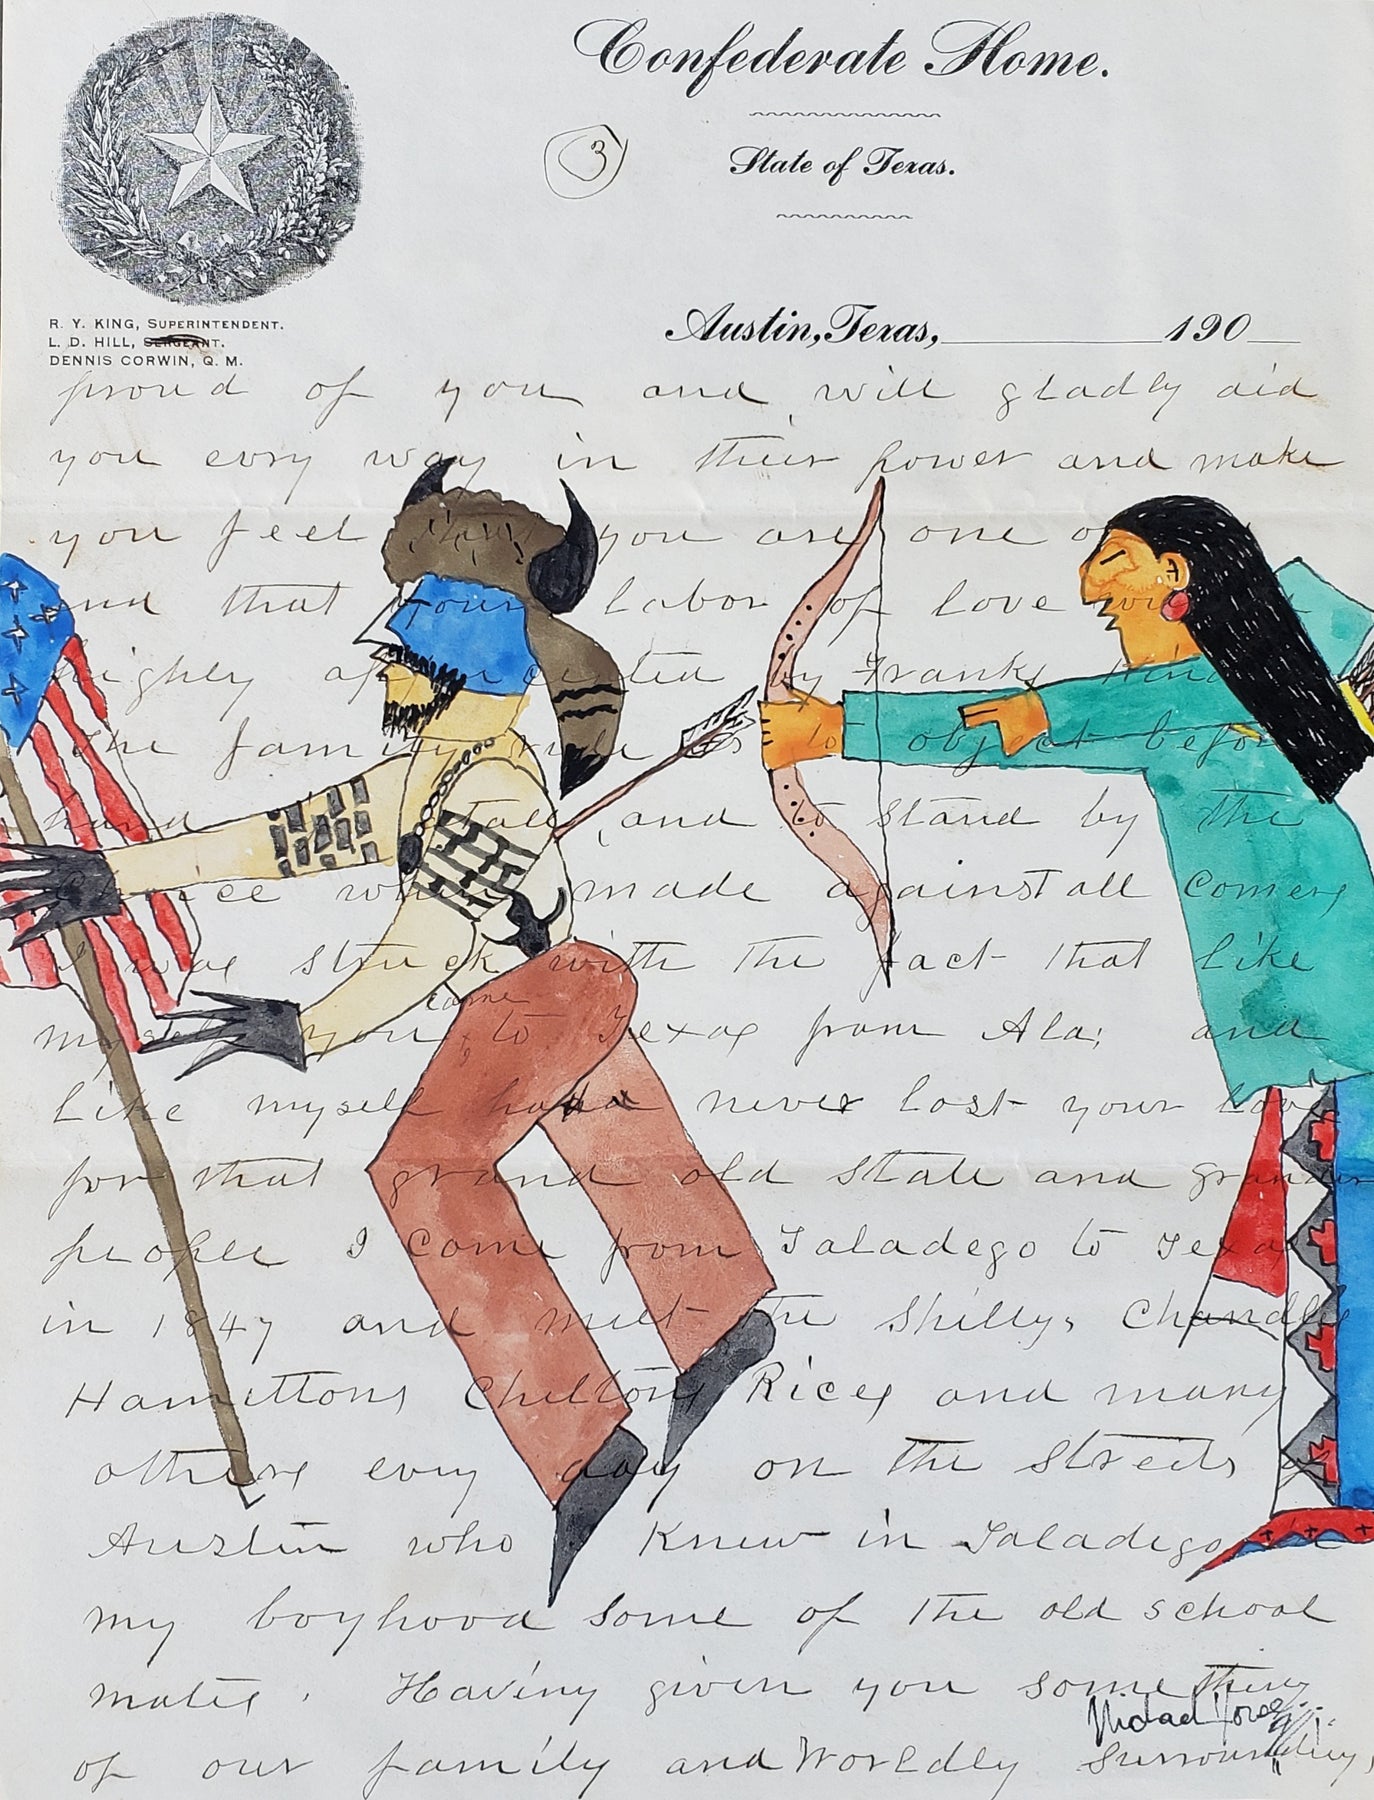 Confederate Home.
3
State of Texas.
Austin, Texas, 190
R. Y. KING, SUPERINTENDENT.
L. D. HILL, SERGEANT.
DENNIS CORWIN, Q. M.
proud of you and will gladly aid
you evry way in their power and make
you feel you are one
and that your labor of love
highly appreciated by Franks
the family to object before
hand and to stand by the
choice made against all comers
I was struck with the fact that like
came
myself you to Texas from Ala; and
like myself never lost your love
for that grand old State and grander
people I come from Taladego to Texas
in 1847 and meet the Shellys Chandlers
Hamittons Chiltons Rices and many
others evry day on the Streets of
Austin who I knew in Taladego
my boyhood some of the old school
mates. Having given you something
of our family and Worldly Surroundings